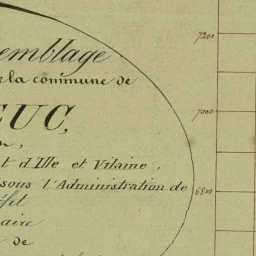 emblage
la commune de
EUC,
t d'Ille et Vilaine,
sous l'Administration de
fet
aire
de
7200
7000
6800